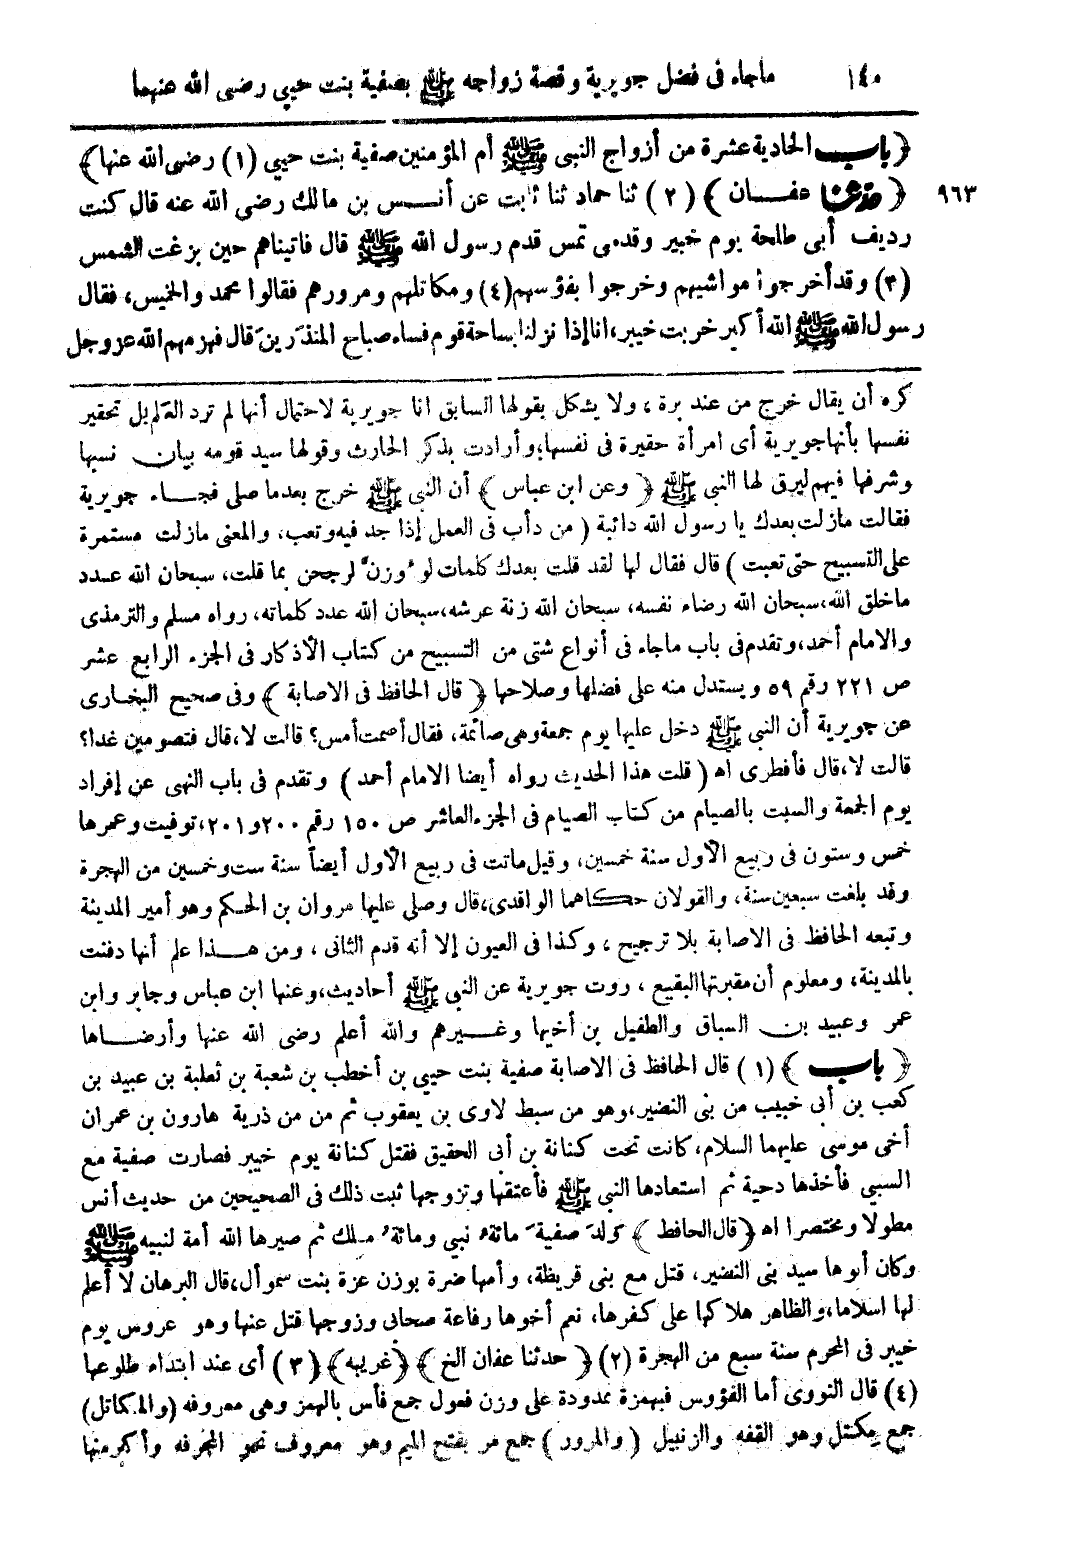 ١٤٠ ماجاء فى فضل جويرية وقصة زواجه ﷺ بصفية بنت حيي رضى الله عنهما
﴿باب الحادية عشرة من أزواج النبى ﷺ أم المؤمنين صفية بنت حيي (١) رضى الله عنها﴾
٩٦٣ ﴿حدثنا عفان﴾ (٢) ثنا حماد ثنا ثابت عن أنس بن مالك رضى الله عنه قال كنت
رديف أبى طلحة يوم خيبر وقدمى تمس قدم رسول الله ﷺ قال فاتيناهم حين بزغت الشمس
(٣) وقد أخرجوا مواشيهم وخرجوا بفؤسهم (٤) ومكاتلهم ومرورهم فقالوا محمد والخميس، فقال
رسول الله ﷺ الله أكبر خربت خيبر، انا إذا نزلنا بساحة قوم فساء صباح المنذَرين قال فهزمهم الله عزوجل
كره أن يقال خرج من عند برة، ولا يشكل بقولها السابق انا جويرية لاحتمال أنها لم ترد العَلم بل تحقير
نفسها بأنها جويرية أى امرأة حقيرة فى نفسها، وأرادت بذكر الحارث وقولها سيد قومه بيان نسبها
وشرفها فيهم ليرق لها النبى ﷺ ﴿وعن ابن عباس﴾ أن النبى ﷺ خرج بعدما صلى فجاء جويرية
فقالت مازلت بعدك يا رسول الله دائبة (من دأب فى العمل إذا جد فيه وتعب، والمعنى مازلت مستمرة
على التسبيح حتى تعبت) قال فقال لها لقد قلت بعدك كلمات لو وزن لرجحن بما قلت، سبحان الله عدد
ماخلق الله، سبحان الله رضاء نفسه، سبحان الله زنة عرشه، سبحان الله عدد كلماته، رواه مسلم والترمذى
والامام أحمد، وتقدم فى باب ماجاء فى أنواع شتى من التسبيح من كتاب الأذكار فى الجزء الرابع عشر
ص ٢٢١ رقم ٥٩ ويستدل منه على فضلها وصلاحها ﴿قال الحافظ فى الاصابة﴾ وفى صحيح البخارى
عن جويرية أن النبى ﷺ دخل عليها يوم جمعة وهى صائمة، فقال أصمت أمس؟ قالت لا، قال فتصومين غدا؟
قالت لا، قال فأفطرى اه ﴿قلت هذا الحديث رواه أيضا الامام أحمد﴾ وتقدم فى باب النهى عن إفراد
يوم الجمعة والسبت بالصيام من كتاب الصيام فى الجزء العاشر ص ١٥٠ رقم ٢٠٠ و٢٠١، توفيت وعمرها
خمس وستون فى ربيع الأول سنة خمسين، وقيل ماتت فى ربيع الأول أيضاً سنة ست وخمسين من الهجرة
وقد بلغت سبعين سنة، والقولان حكاهما الواقدى، قال وصلى عليها مروان بن الحكم وهو أمير المدينة
وتبعه الحافظ فى الاصابة بلا ترجيح، وكذا فى العيون إلا أنه قدم الثانى، ومن هذا علم أنها دفنت
بالمدينة، ومعلوم أن مقبرتها البقيع، روت جويرية عن النبى ﷺ أحاديث، وعنها ابن عباس وجابر وابن
عمر وعبيد بن السباق والطفيل بن أخيها وغيرهم والله أعلم رضى الله عنها وأرضاها
﴿باب﴾ (١) قال الحافظ فى الاصابة صفية بنت حيي بن أخطب بن شعبة بن ثعلبة بن عبيد بن
كعب بن أبى خبيب من بنى النضير، وهو من سبط لاوى بن يعقوب ثم من من ذرية هارون بن عمران
أخى موسى عليهما السلام، كانت تحت كنانة بن أبى الحقيق فقتل كنانة يوم خيبر فصارت صفية مع
السبي فأخذها دحية ثم استعادها النبى ﷺ فأعتقها وتزوجها ثبت ذلك فى الصحيحين من حديث أنس
مطولا ومختصرا اه ﴿قال الحافظ﴾ وَلد صفية مائة نبي ومائة ملك ثم صيرها الله أمة لنبيه ﷺ
وكان أبوها سيد بنى النضير، قتل مع بنى قريظة، وأمها ضرة بوزن عزة بنت سموأل، قال البرهان لا أعلم
لها اسلاما، والظاهر هلاكها على كفرها، نعم أخوها رفاعة صحابى وزوجها قتل عنها وهو عروس يوم
خيبر فى المحرم سنة سبع من الهجرة (٢) ﴿حدثنا عفان الخ﴾ ﴿غريبه﴾ (٣) أى عند ابتداء طلوعها
(٤) قال النووى أما الفؤوس فبهمزة ممدودة على وزن فعول جمع فأس بالهمز وهى معروفه (والمكاتل)
جمع مكتل وهو القفه والزنبيل (والمرور) جمع مر بفتح الميم وهو معروف نحو المجرفه وأكبر منها